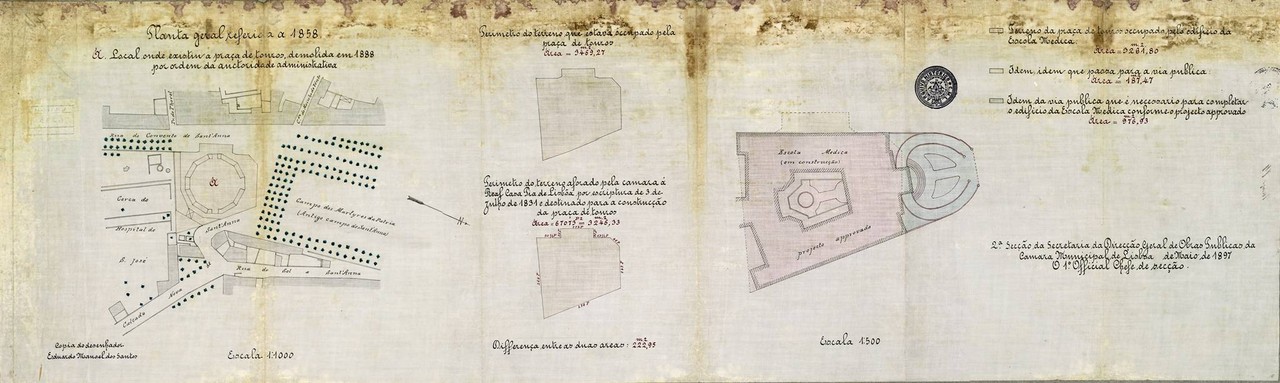 Planta geral referida a 1858
A. Local onde existiu a praça de touros, demolida em 1888
por ordem da auctoridade administrativa
Rua do Convento de Sant'Anna
A
Cerca do
Hospital de
S. José
Sant'Anna
Campo dos Martyres da Patria
(Antigo campo de Sant'Anna)
Rua do Sol a Sant'Anna
Calçada Nova
N.
Copia do desenhador
Eduardo Manuel dos Santos
Escala 1:1000
Perimetro do terreno que estava occupado pela
praça de touros
Area = 3469,27
Perimetro do terreno aforado pela camara á
Real Casa Pia de Lisboa por escriptura de 3 de
Julho de 1831 e destinado para a construcção
da praça de touros
Area = 67073 = 3246,33
Differença entre as duas areas: 222,95
Escola Medica
(em construcção)
projecto approvado
Escala 1:500
Terreno da praça de touros occupado pelo edificio da
Escola Medica
Area = 3281,80
Idem, idem que passa para a via publica
Area = 187,47
Idem da via publica que é necessario para completar
o edificio da Escola Medica conforme o projecto approvado
Area = 976,93
2ª Secção da Secretaria da Direcção Geral de Obras Publicas da
Camara Municipal de Lisboa de Maio de 1897
O 1º Official Chefe de secção.